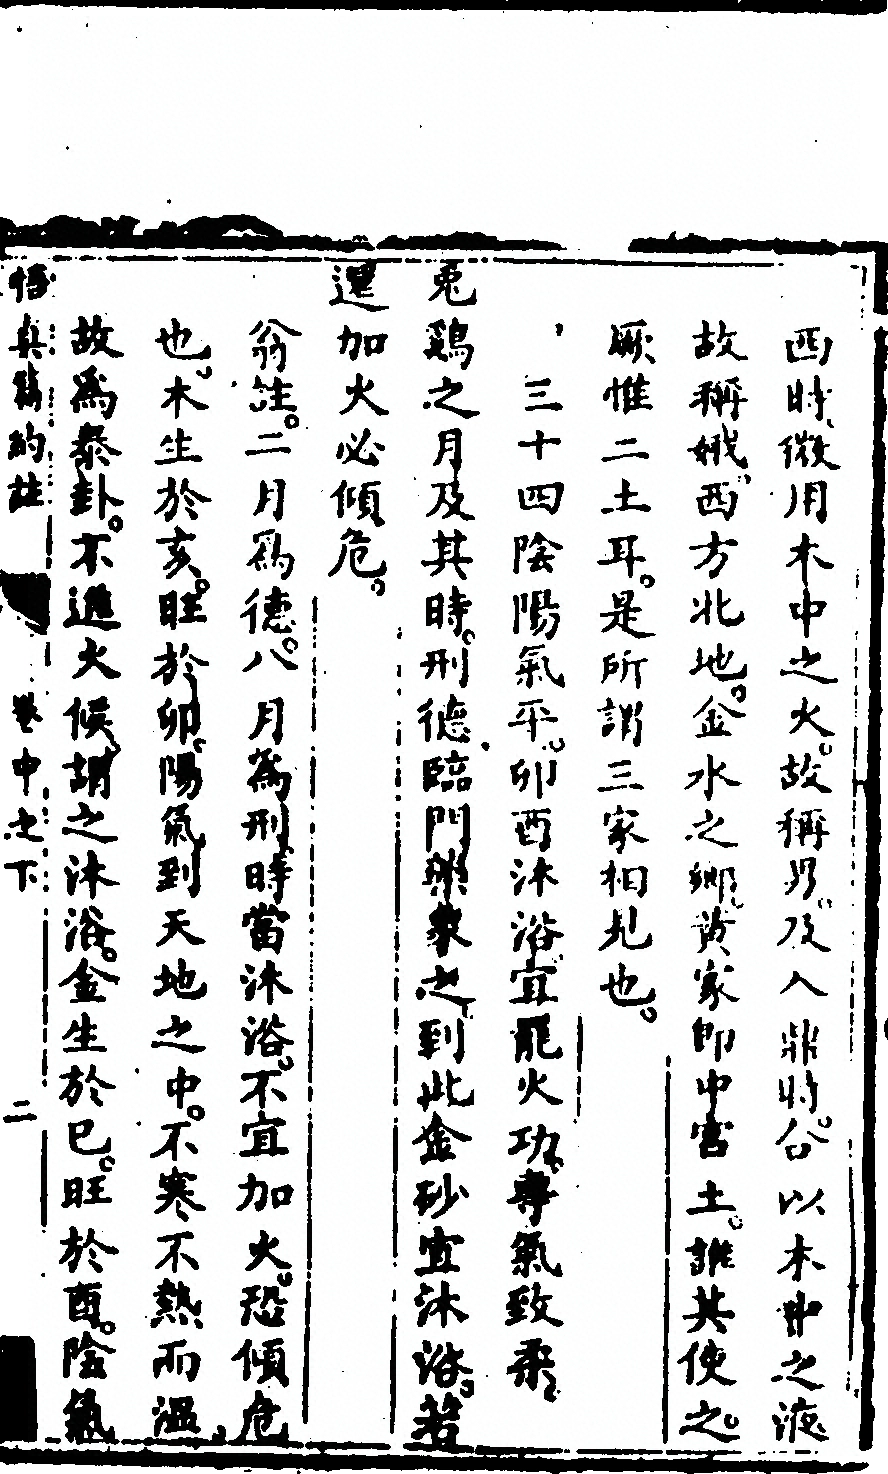 酉時、做用木中之火。故稱男。及入鼎時。公以木中之液
故稱娥。西方北地。金水之鄉。黃家即中宮土。誰其使之。
厥惟二土耳。是所謂三家相見也。
三十四陰陽氣平。卯酉沐浴宜罷火功。專氣致柔。
兔鷄之月及其時。刑德臨門藥象之。到此金砂宜沐浴。若
還加火必傾危。
翁註。二月爲德。八月爲刑時當沐浴。不宜加火。恐傾危
也。木生於亥。旺於卯。陽氣到天地之中。不寒不熱而溫
故爲泰卦。不進火候、謂之沐浴。金生於巳。旺於酉。陰氣
悟真篇約註 卷中之下 二